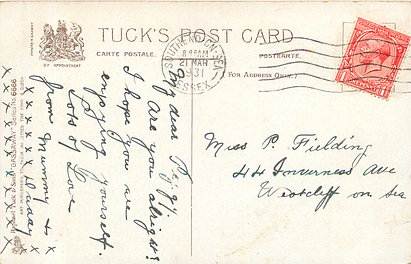 TUCK'S POST CARD
CARTE POSTALE.
POSTKARTE.
BY APPOINTMENT
(FOR ADDRESS ONLY.)
SOUTHEND-ON-SEA
21 MAR
1931
ESSEX
My dear Peggy.
Are you alright?
I hope you are
enjoying yourself.
Lots of Love
from Mummy &
Daddy
x x x x x x x x x x
Miss P. Fielding
44 Inverness Ave
Westcliff on sea